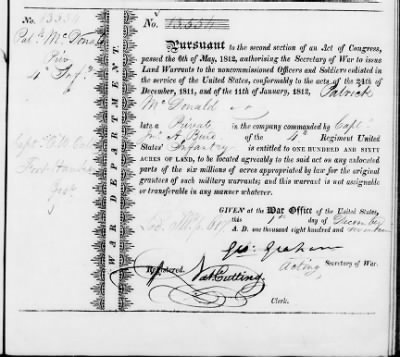 No. 13554
Patk McDonald
Priv
4th Infy
Fort Hawkins
WAR DEPARTMENT.
No. 13554
Pursuant to the second section of an Act of Congress,
passed the 6th of May, 1812, authorising the Secretary of War to issue
Land Warrants to the noncommissioned Officers and Soldiers enlisted in
the service of the United States, conformably to the acts of the 24th of
December, 1811, and of the 11th of January, 1812, Patrick
McDonald
late a Private in the company commanded by Capt
of the 4th Regiment United
States' Infantry is ENTITLED TO ONE HUNDRED AND SIXTY
ACRES OF LAND, to be located agreeably to the said act on any unlocated
parts of the six millions of acres appropriated by law for the original
grantees of such military warrants; and this warrant is not assignable
or transferable in any manner whatever.
GIVEN at the War Office of the United States,
this 1st day of December
A. D. one thousand eight hundred and seventeen
Geo: Graham
Acting Secretary of War.
Registered.
Nat Cutting
Clerk.